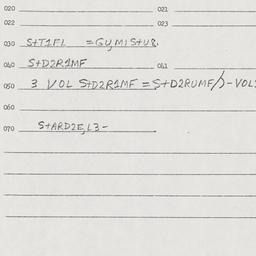 020 021
022 023
030 S+T1FL =GUMIS+U8.
040 S+D2R1MF 041
050 3 VOL S+D2R1MF =S+D2RUMF/)-VOL
060
070 S+ARD2E,L3-